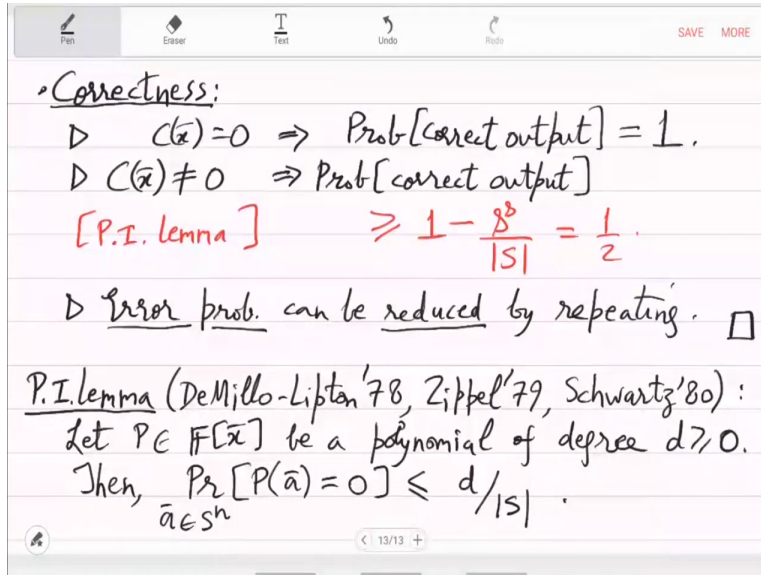 Pen Eraser Text Undo Redo SAVE MORE
• Correctness:
▷ C(x̄)=0 ⇒ Prob[correct output] = 1.
▷ C(x̄)≠0 ⇒ Prob[correct output]
[P.I. lemma] ≥ 1 - s^s/|S| = 1/2.
▷ Error prob. can be reduced by repeating. □
P.I. lemma (DeMillo-Lipton'78, Zippel'79, Schwartz'80):
Let P∈ 𝔽[x̄] be a polynomial of degree d≥0.
Then, Pr [P(ā) = 0] ≤ d/|S| .
ā∈Sⁿ
< 13/13 +